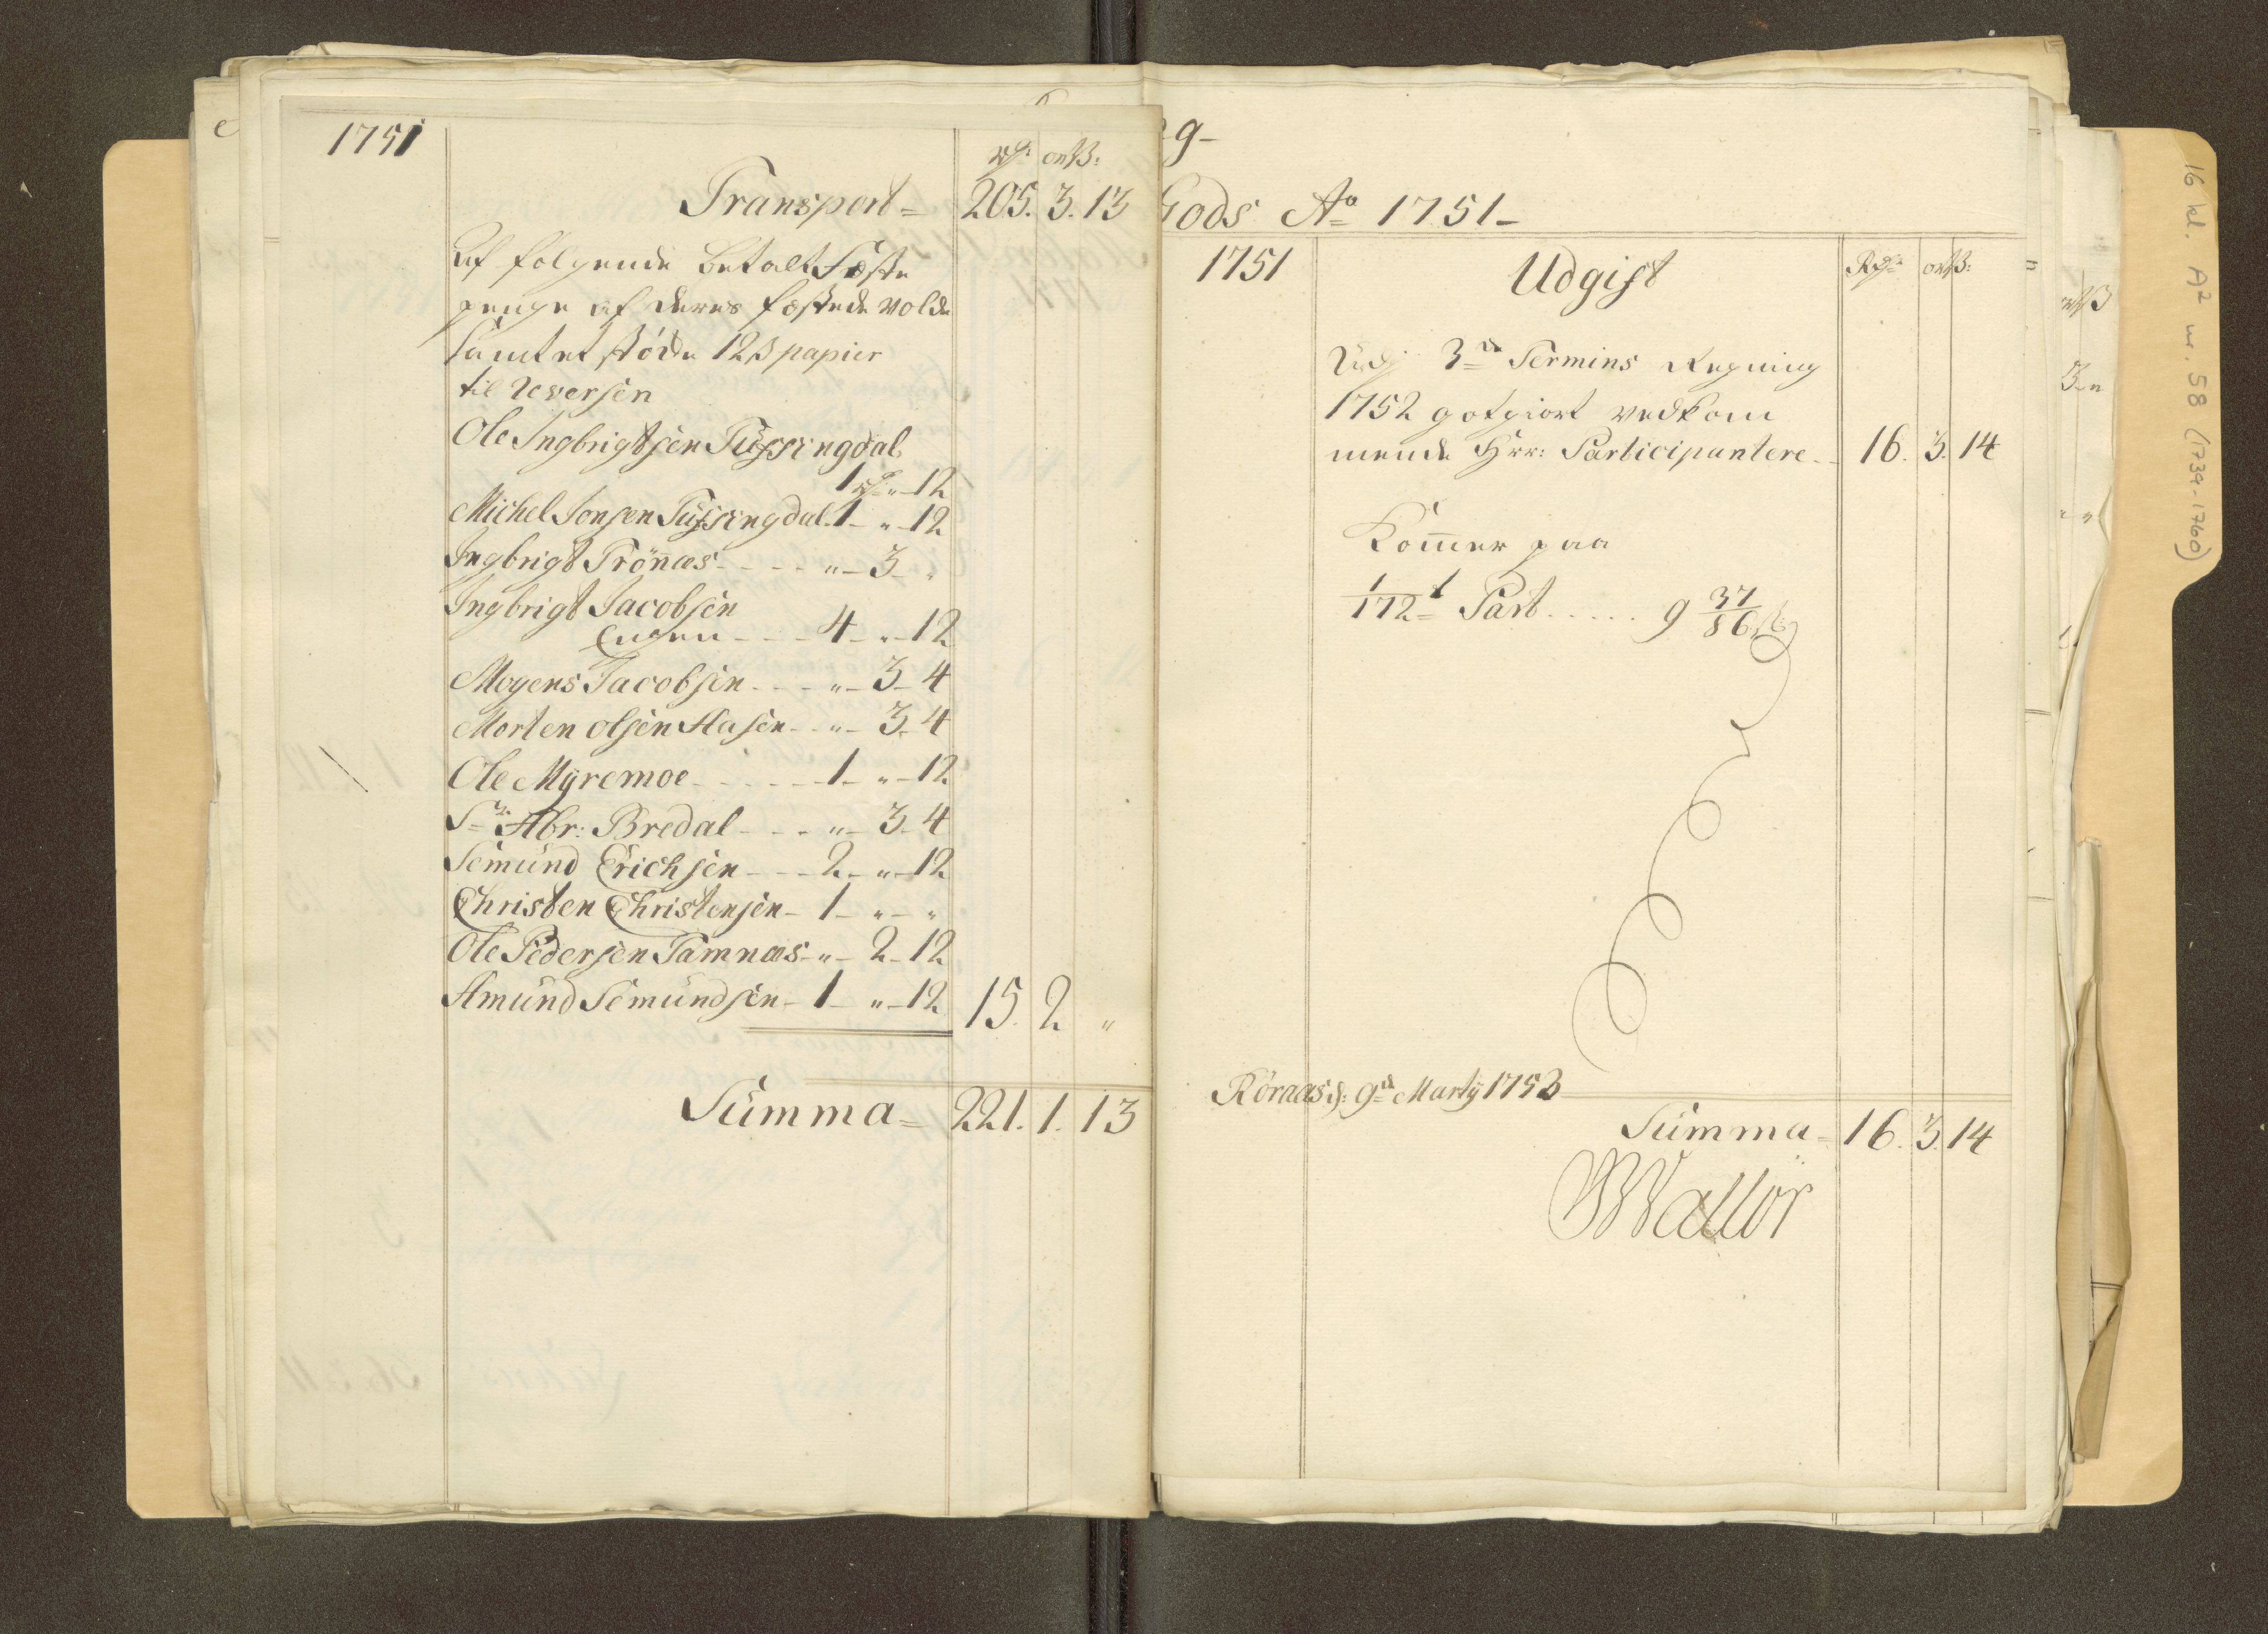 1751
rd: ort ß:
Transport = 205. 3. 13
Af følgende betalt Fæste
penge af deres fæstede volde
samt et støcke 12 ß papier
til Reversen
Ole Ingbrigtsen Tüfsingdal
1 rd " - 12
Michel Jonsen Tüfsingdal 1 - " - 12
Ingbrigt Trönæs - - - - " - 3 - "
Ingbrigt Jacobsen
Engen - - - 4 - " - 12
Mogens Jacobsen - - - " - 3 - 4
Morten Olsen Hasen - - " - 3 - 4
Ole Mÿremoe - - - - - - 1 - " - 12
Sr. Abr: Bredal - - - " - 3 - 4
Semund Erichsen - - - 2 - " - 12
Christen Christensen - 1 - " - "
Ole Pedersen Tamnæs - " - 2 - 12
Amund Semundsen - 1 - " - 12 15. 2 "
Summa = 221. 1. 13
g-
Gods Ao 1751 -
1751 Udgift Rd: ort ß:
Udj 3de Termins Regning
1752 gotgiort vedkom
mende Hrr: Participantere - 16. 3. 14
Kommer paa
1/172 t Part ..... 9 37/86 ß
Röraas d: 9de Martÿ 1753
Summa = 16. 3. 14
16 kl. A2 nr. 58 (1739-1760)